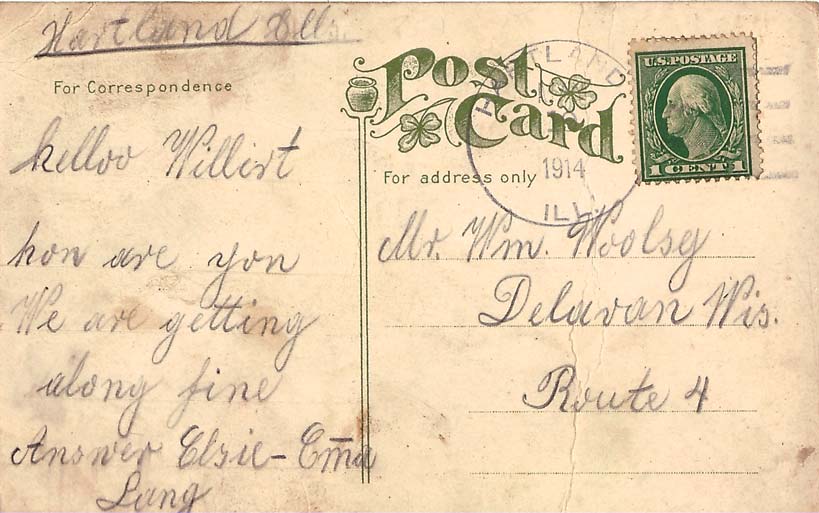 Hartland Ills.
For Correspondence
Post Card
HARTLAND
1914
ILL.
U.S. POSTAGE
1 CENT 1
For address only
helloo Willist
hon are yon
We are getting
along fine
Answer Elsie – Emma
Lang
Mr. Wm. Woolsey
Delavan Wis.
Route 4